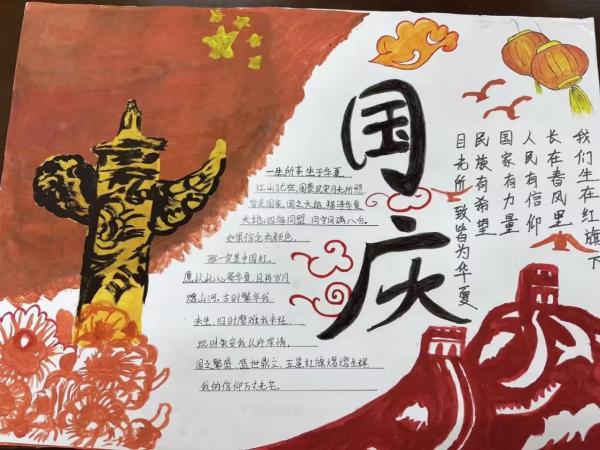 国庆
一生所幸,生于华夏,
江山记在,国泰民安月光所照
皆是国家,国之大祖,福泽华夏
大地,四海同盟,同守月满八分。
如果信念有颜色,
那一定是中国红。
愿从此心寄华夏,且将岁月
赠山河,古时繁华我
未生,旧时磨难我未经,
现时安我从许深情,
国之繁盛,盛世鼎立,五星红旗熠熠生辉
我的信仰万丈光芒。
我们生在红旗下
长在春风里
人民有信仰
国家有力量
民族有希望
目光所致皆为华夏